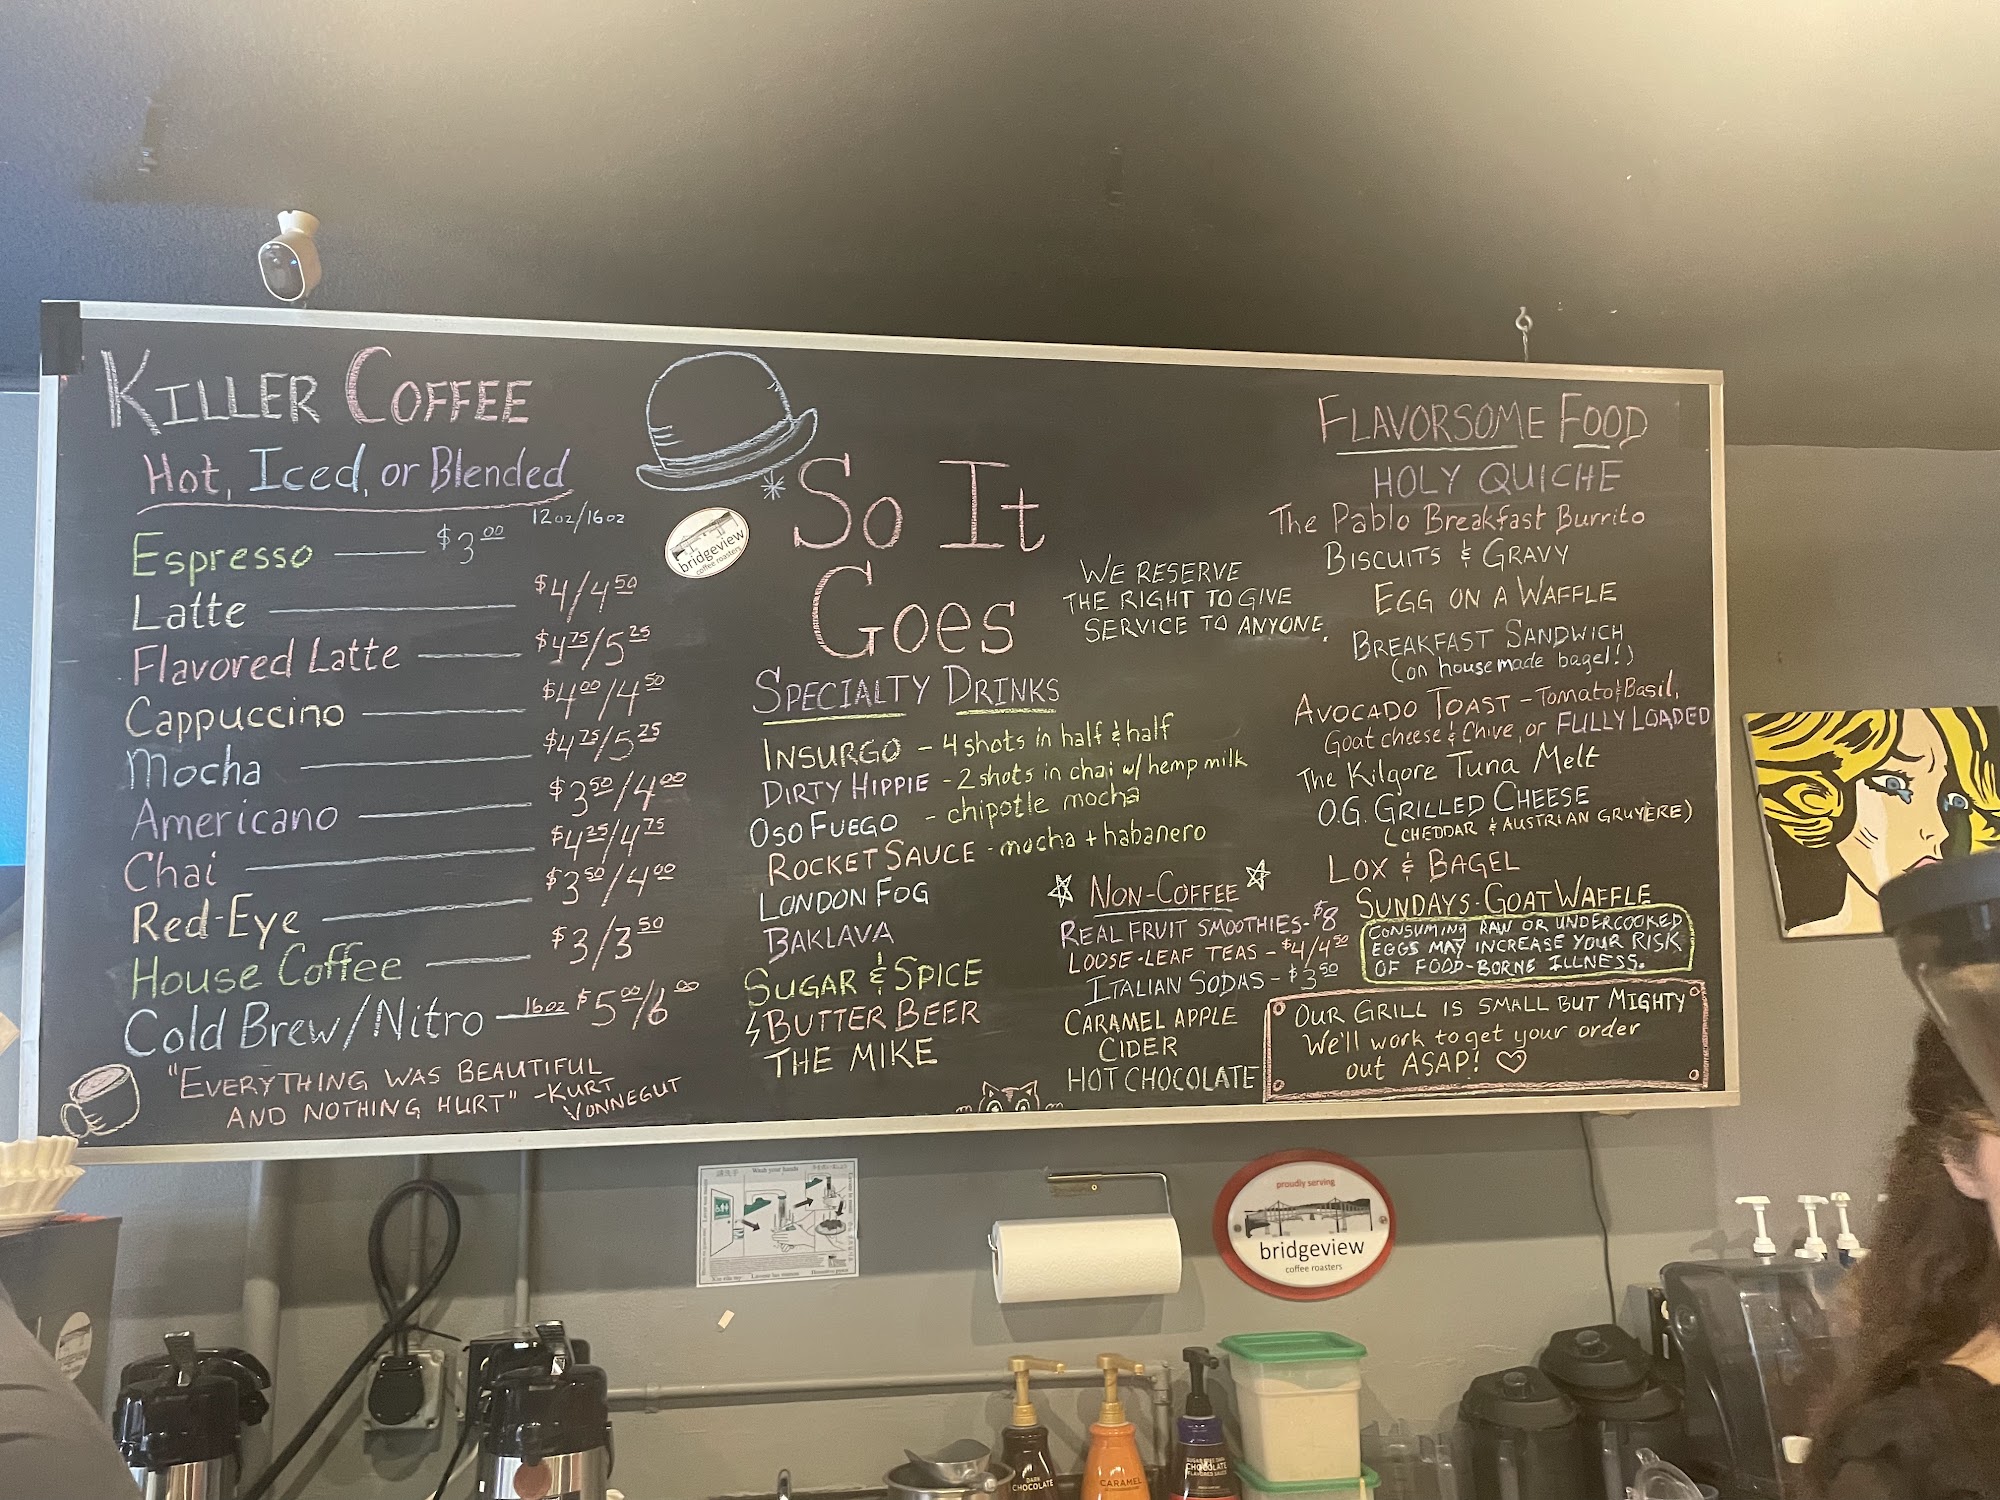 KILLER COFFEE
Hot, Iced, or Blended
12oz/16oz
Espresso $3.00
Latte $4/4.50
Flavored Latte $4.75/5.25
Cappuccino $4.00/4.50
Mocha $4.75/5.25
Americano $3.50/4.00
Chai $4.25/4.75
Red-Eye $3.50/4.00
House Coffee $3/3.50
Cold Brew/Nitro 16oz $5.00/6.00
"EVERYTHING WAS BEAUTIFUL
AND NOTHING HURT" -KURT
VONNEGUT
bridgeview
coffee roasters
So It
Goes
WE RESERVE
THE RIGHT TO GIVE
SERVICE TO ANYONE.
SPECIALTY DRINKS
INSURGO - 4 shots in half & half
DIRTY HIPPIE - 2 shots in chai w/ hemp milk
OSO FUEGO - chipotle mocha
ROCKET SAUCE - mocha + habanero
LONDON FOG
BAKLAVA
SUGAR & SPICE
BUTTER BEER
THE MIKE
NON-COFFEE
REAL FRUIT SMOOTHIES - $8
LOOSE-LEAF TEAS - $4/4.50
ITALIAN SODAS - $3.50
CARAMEL APPLE
CIDER
HOT CHOCOLATE
FLAVORSOME FOOD
HOLY QUICHE
The Pablo Breakfast Burrito
BISCUITS & GRAVY
EGG ON A WAFFLE
BREAKFAST SANDWICH
(on housemade bagel!)
AVOCADO TOAST - Tomato & Basil,
Goat cheese & Chive, or FULLY LOADED
The Kilgore Tuna Melt
O.G. GRILLED CHEESE
(CHEDDAR & AUSTRIAN GRUYÈRE)
LOX & BAGEL
SUNDAYS - GOAT WAFFLE
CONSUMING RAW OR UNDERCOOKED
EGGS MAY INCREASE YOUR RISK
OF FOOD-BORNE ILLNESS.
OUR GRILL IS SMALL BUT MIGHTY
We'll work to get your order
out ASAP!
Wash your hands
proudly serving
bridgeview
coffee roasters
DARK
CHOCOLATE
CARAMEL
CHOCOLATE